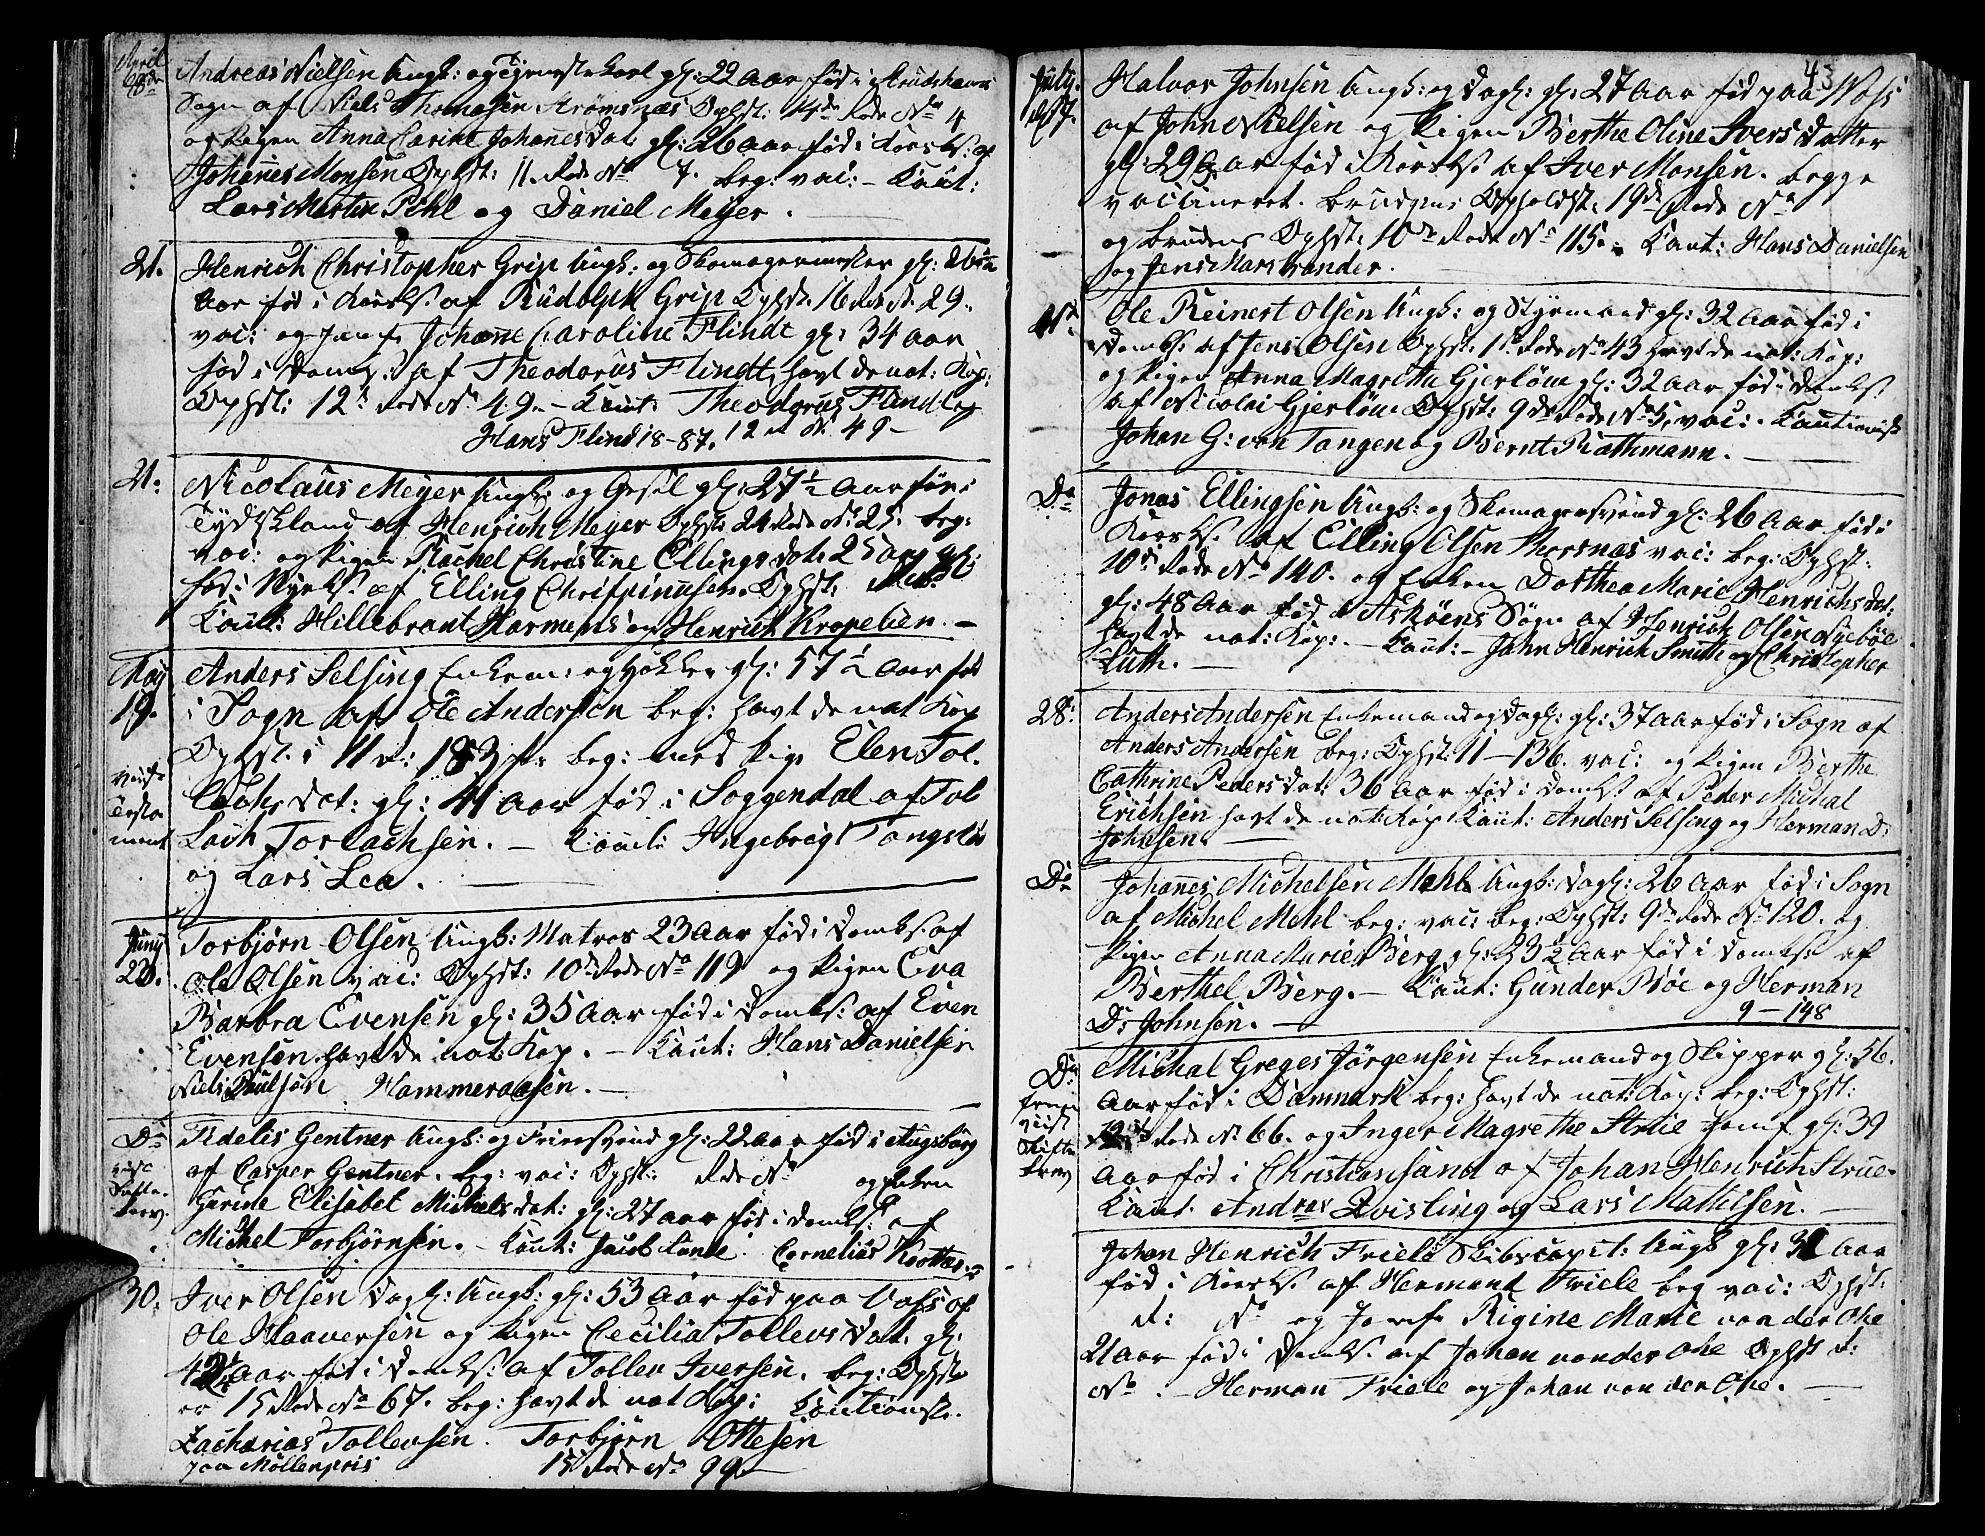 April
28de
Andreas Nielsen Ungk: og Tienestekarl gl: 22 Aar fød i Strudshavns
Sogn af Niels Thomasen Strømsnæs Ophst: 4de Rode No 4
og Pigen Anna Carine Johanesdat gl: 26 Aar fød i Korsk: af
Johannes Monsen Ophst: 11. Rode No 7. beg: vac: - Caut:
Lars Morten Pihl og Daniel Meyer.
21. Henrich Christopher Grip Ungk: og Skomagermester gl: 26 1/2
Aar fød i Korsk: af Rudolph Grip Ophst: 16 Rode No. 29.
vac: og Jomf Johane Caroline Flindt gl: 34 Aar
fød i Domk: af Theodorus Flindt, havt de nat: Kop:
Ophst: 12te Rode No 49. - Caut: Theodorus Flindt og
Hans Flind 18-87. 12 - No 49 -
21. Nicolaus Meyer Ungk: og Gesel gl: 27 1/2 Aar fød i
Tydskland af Henrich Meyer Ophst: 24 Rode No 25. beg:
vac: og Pigen Rachel Christine Ellingsdat: 25 Aar gl:
fød i Nyek: af Elling Chrispinusen. Ophst: Rode
Caut: Hillebrant Harmens og Henrich Kropelien. -
May
19. Anders Selsing Enkem: og Høkker gl: 57 1/2 Aar fød
i Sogn af Ole Andersen beg: havt de nat Kop
Ophst: i 11 R: 183 beg: med Pige Elen Tol
viist Lachsdat: gl: 41 Aar fød i Soggendal af Tol
Testa
ment Lach Torlachsen. - Caut: Ingebregt Tangsløe
og Lars Lea.
Juny
23. Torbjørn Olsen Ungk: Matros 23 Aar fød i Domk: af
Ole Olsen vac: Ophst: 10de Rode No 119 og Pigen Eva
Barbra Evensen gl: 35 Aar fød i Domk: af Even
Evensen havt de nat: Kop. - Caut: Hans Danielsen
Niels Poulson Hammeraasen. -
Do Fidelis Gentner Ungk: og Friersvend gl: 22 Aar fød i Augsborg
viist af Casper Gentner. beg: vac: Ophst: Rode No og Enken
Skifte
brev. Gurine Elisabet Michelsdat: gl: 27 Aar fød i Domk: af
Michel Torbjørnsen. - Caut: Jacob Lande Cornelius Knottas
30. Iver Olsen Dagl: Ungk: gl: 53 Aar fød paa Voss af
Ole Haaversen og Pigen Cecilia Tollevsdat: gl:
42 Aar fød i Domk: af Tollev Iversen. beg: Ophst:
er 15 Rode No 67. beg: havt de nat Kop: Cautionste.
Zacharias Tollevsen. Torbjørn Ottesen
paa Møllenpris 15 Rode No 99.
43
July
d 7. Halvor Johnsen Ungk: og Dagl: gl: 27 Aar fød paa Voss
af John Nielsen og Pigen Berthe Oline Ivers datter
gl: 29 Aar fød i Korsk: af Iver Monsen. begge
vaccineret. Brudgms Opholdst: 19de Rode No
og Brudens Ophst: 10de Rode No 115. - Caut: Hans Danielsen
og Jens Marstrander.
Ole Reinert Olsen Ungk: og Styrmand gl: 32 Aar fød i
Domk: af Jens Olsen Ophst: 1te Rode No 43 havt de nat: Kop:
og Pigen Anna Magretha Gjerløw gl: 32 Aar fød i Domk:
af Nicolai Gjerløw Ophst: 9de Rode No 5, vac: - Cautionist
Johan G: von Tangen og Bernt Rathmann. -
Do Jonas Ellingsen Ungk: og Skomagersvend gl: 26 Aar fød i
Korsk: af Elling Olsen Thorsnæs vac: beg: Ophst:
10de Rode No 140. og Enken Dorthea Marie Henrichsdat:
gl: 48 Aar fød i Askøens Sogn af Henrich Olsen Syebøe
havt de nat: Kop: - Caut: - Jahn Henrich Smith og Christopher
Luth. -
28: Anders Andersen Enkemand og Dagl: gl: 37 Aar fød i Sogn af
Anders Andersen beg: Ophst: 11 - 136. vac: og Pigen Berthe
Cathrine Pedersdat: 36 Aar fød i Domk: af Peder Michal
Erichsen havt de nat: Kop Caut: Anders Selsing og Herman D:
Johnsen.
Do Johannes Michelsen Mehl Ungk: Dagl: 26 Aar fød i Sogn
af Michel Mehl beg: vac: beg: Ophst: 9de Rode No 120. og
Pigen Anna Marie Berg gl: 23 1/2 Aar fød i Domk: af
Berthel Berg. - Caut: Gunder Røe og Herman
D: Johnsen. - 9 - 148
Do Michal Greges Jørgensen Enkemand og Skipper gl: 56.
Aar fød i Danmark beg: havt de nat: Kop: beg: Ophst:
viist
Skifte
brev Rode No 66. og Inger Magrethe Strue Jomf gl: 39
Aar fød i Christiansand af Johan Henrich Strue -
Caut: Andreas Qvisling og Lars Mathisen. -
Johan Henrich Friele Skibscapit: Ungk gl: 31 Aar
fød i Korsk: af Hermand Friele beg vac: Ophst:
R: No og Jomfr Rigine Marie von der Ohe
21 Aar fød i Domk: af Johan von der Ohe Ophst R:
No. - Herman Friele og Johan von der Ohe. -